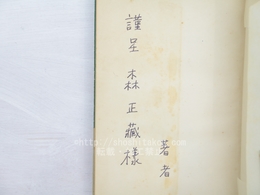 謹呈 森正藏様
著者